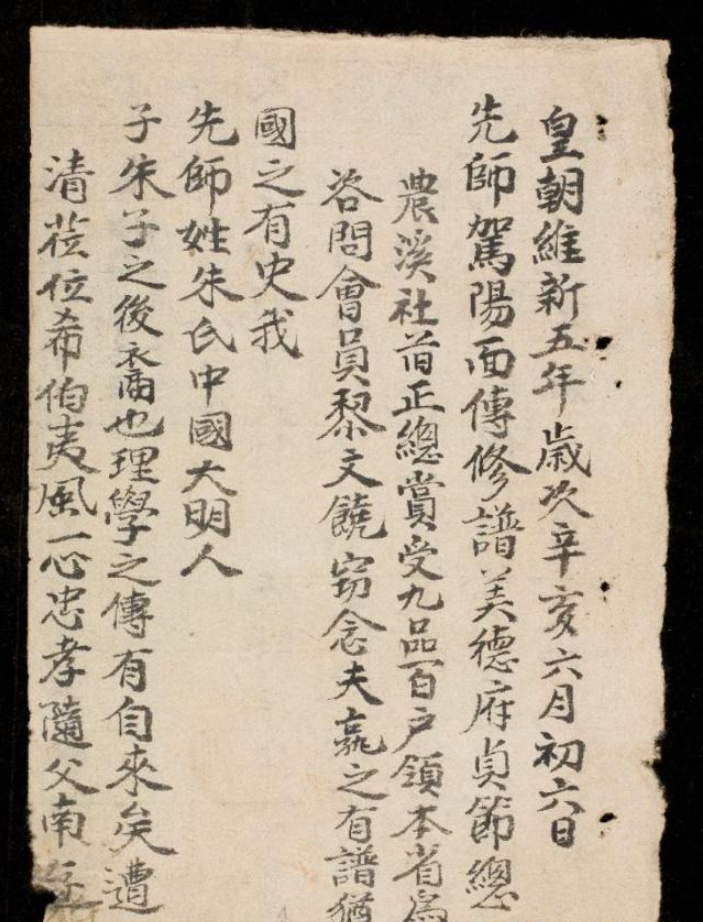 皇朝維新五年歲次辛亥六月初六日
先師駕陽面傳修譜美德府貞節總
農溪社首正總賞受九品百户領本省爲
咨問會員黎文饒窃念夫䕫之有譜猶
國之有史我
先師姓朱氏中國大明人
子朱子之後裔也理學之傳有自來矣遭
清莅位希伯夷風一心忠孝隨父南